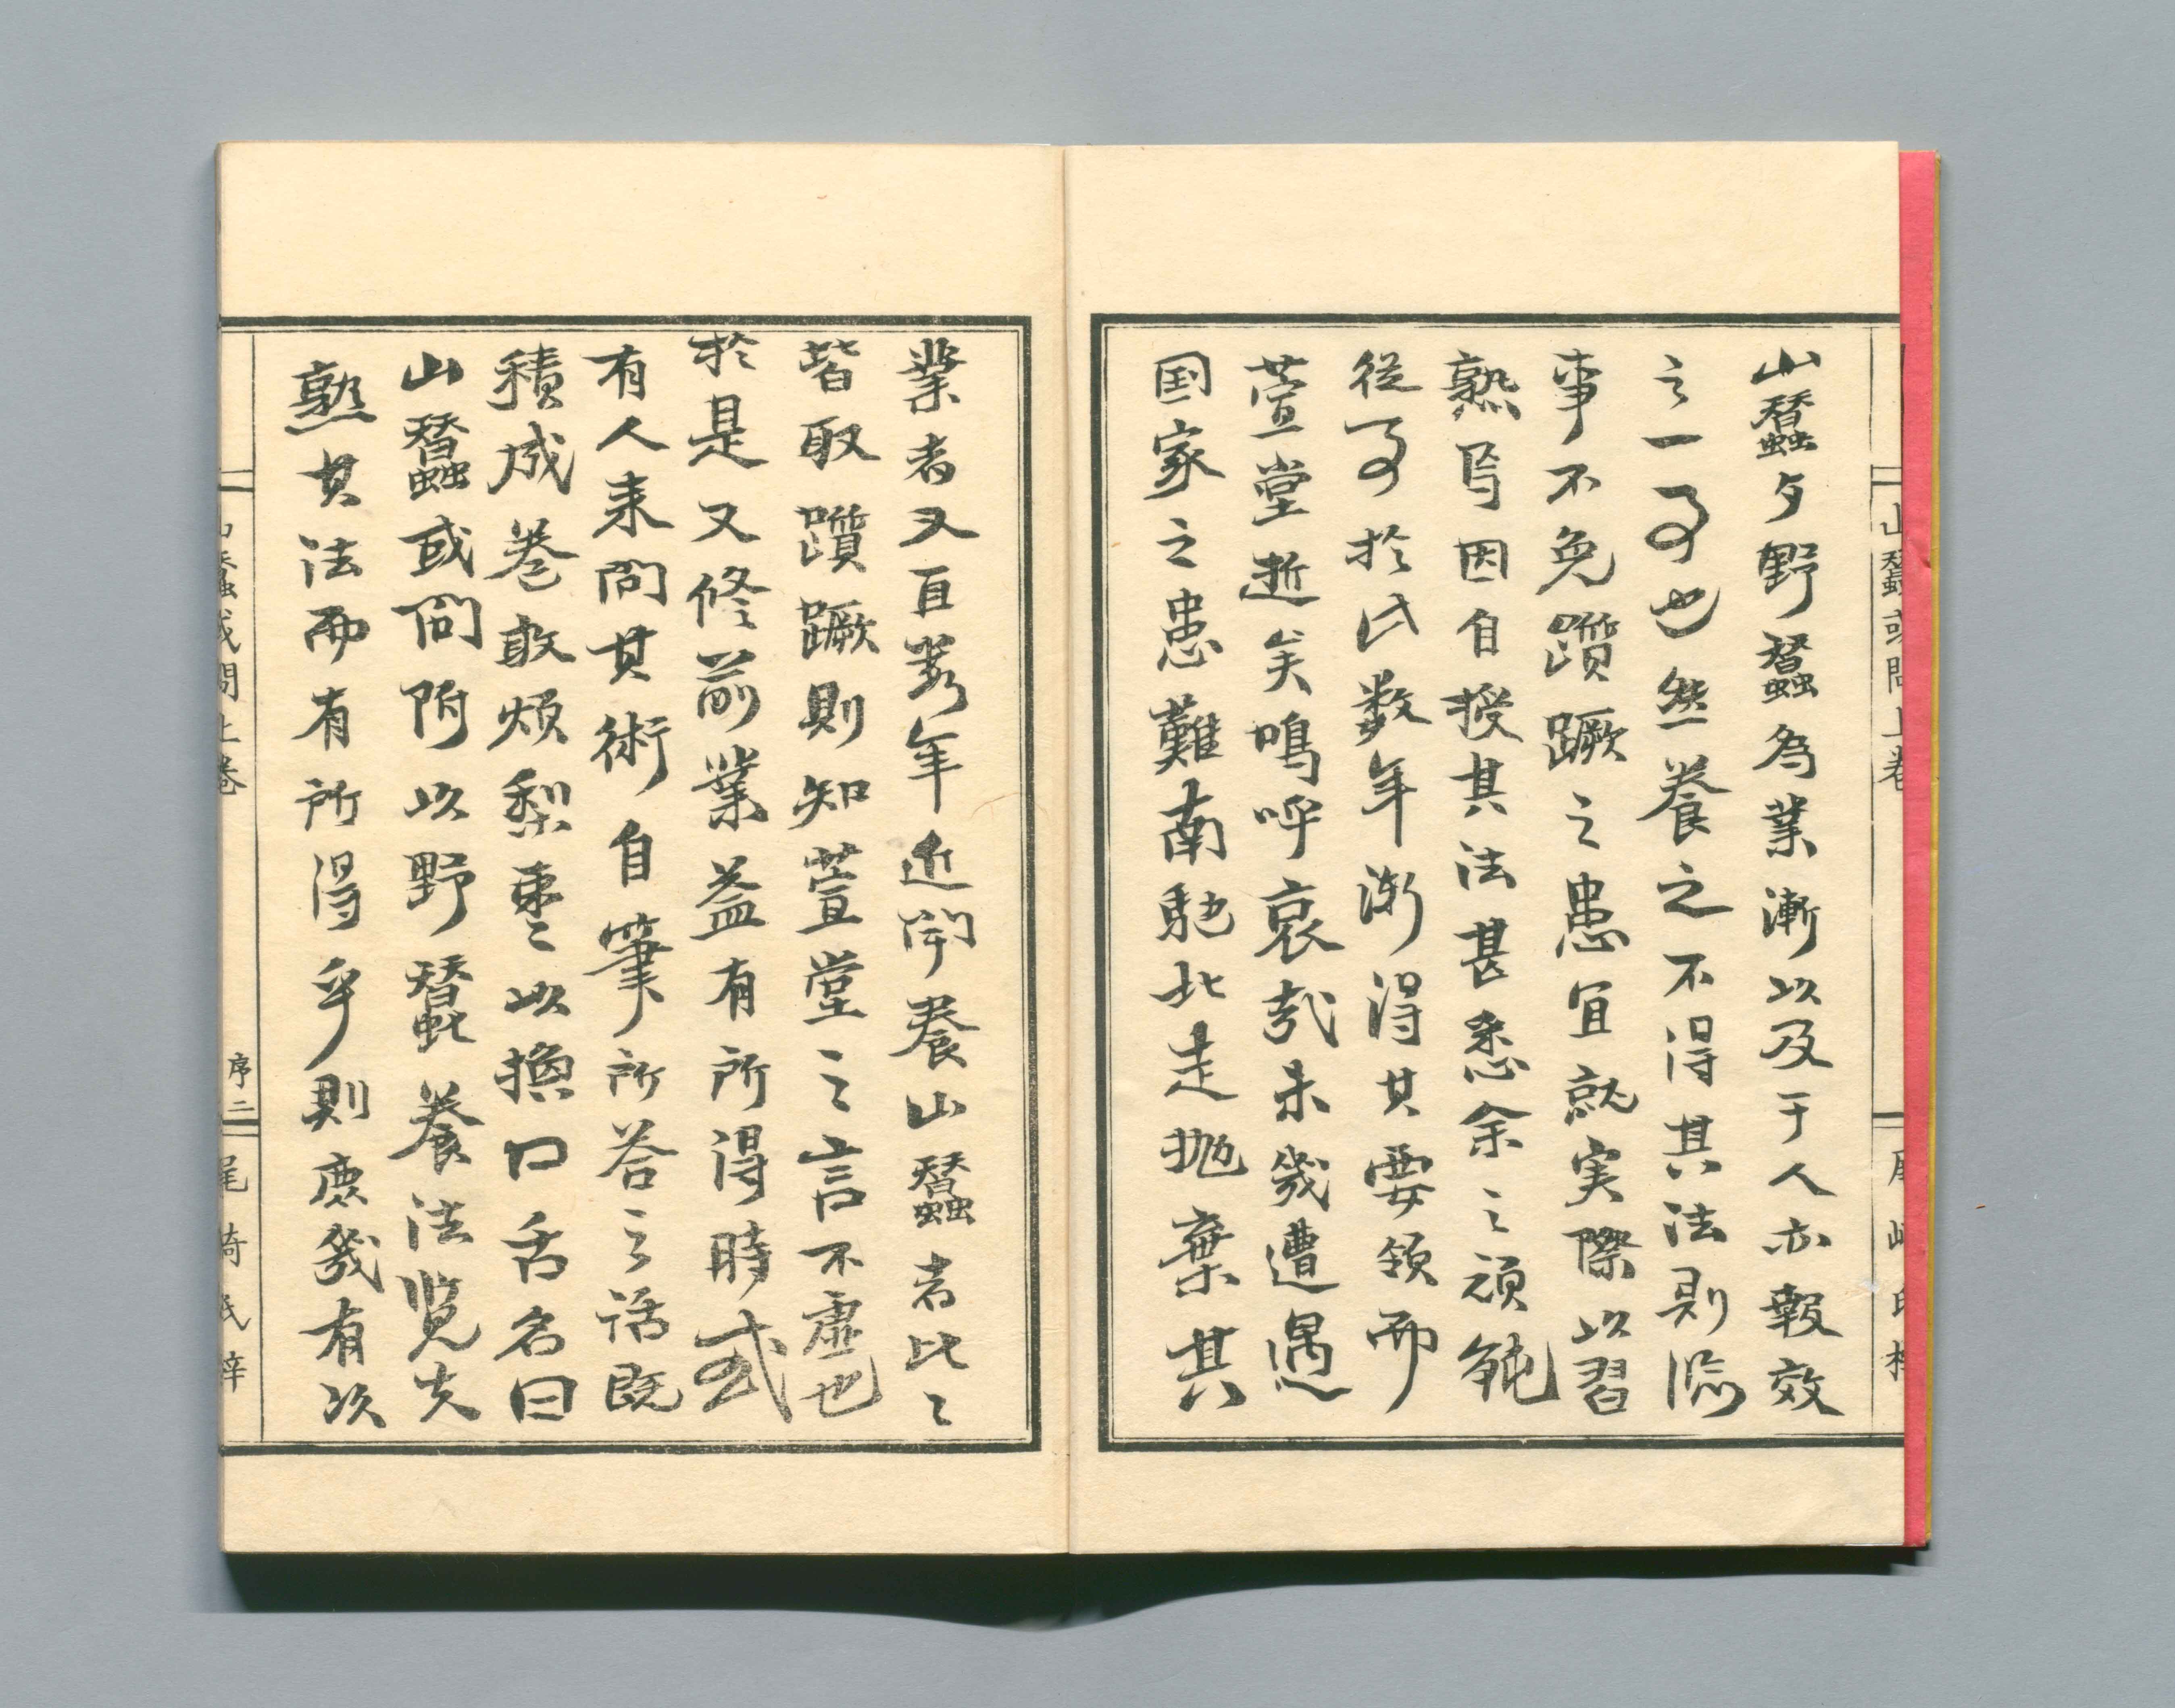 山蠶或問上卷
山蠶夕野蠶為業漸以及于人亦報效
之一事也然養之不得其法則臨
事不免躓蹶之患宜就実際以習
熟焉因自授其法甚悉余之頑鈍
従事於此数年漸得其要領而
萱堂逝矣鳴呼哀哉未幾遭遇
国家之患難南馳北走拋棄其
業者又百数年近聞養山蠶者比〻
皆取躓蹶則知萱堂之言不虚也
於是又修前業益有所得時或
有人来問其術自筆所答之話既
積成巻敢煩梨棗以換口舌名曰
山蠶或問附以野蠶養法覧夫
熟其法而有所得乎則庶幾有次
山蠶或問上卷
序二
尾崎氏梓